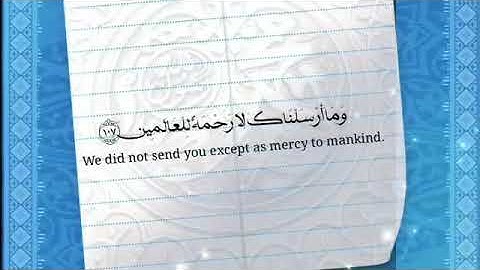 وَمَا أَرسَلنَاكَ لا رَحمَةً لّلعَالَمين ١٠٧
We did not send you except as mercy to mankind.